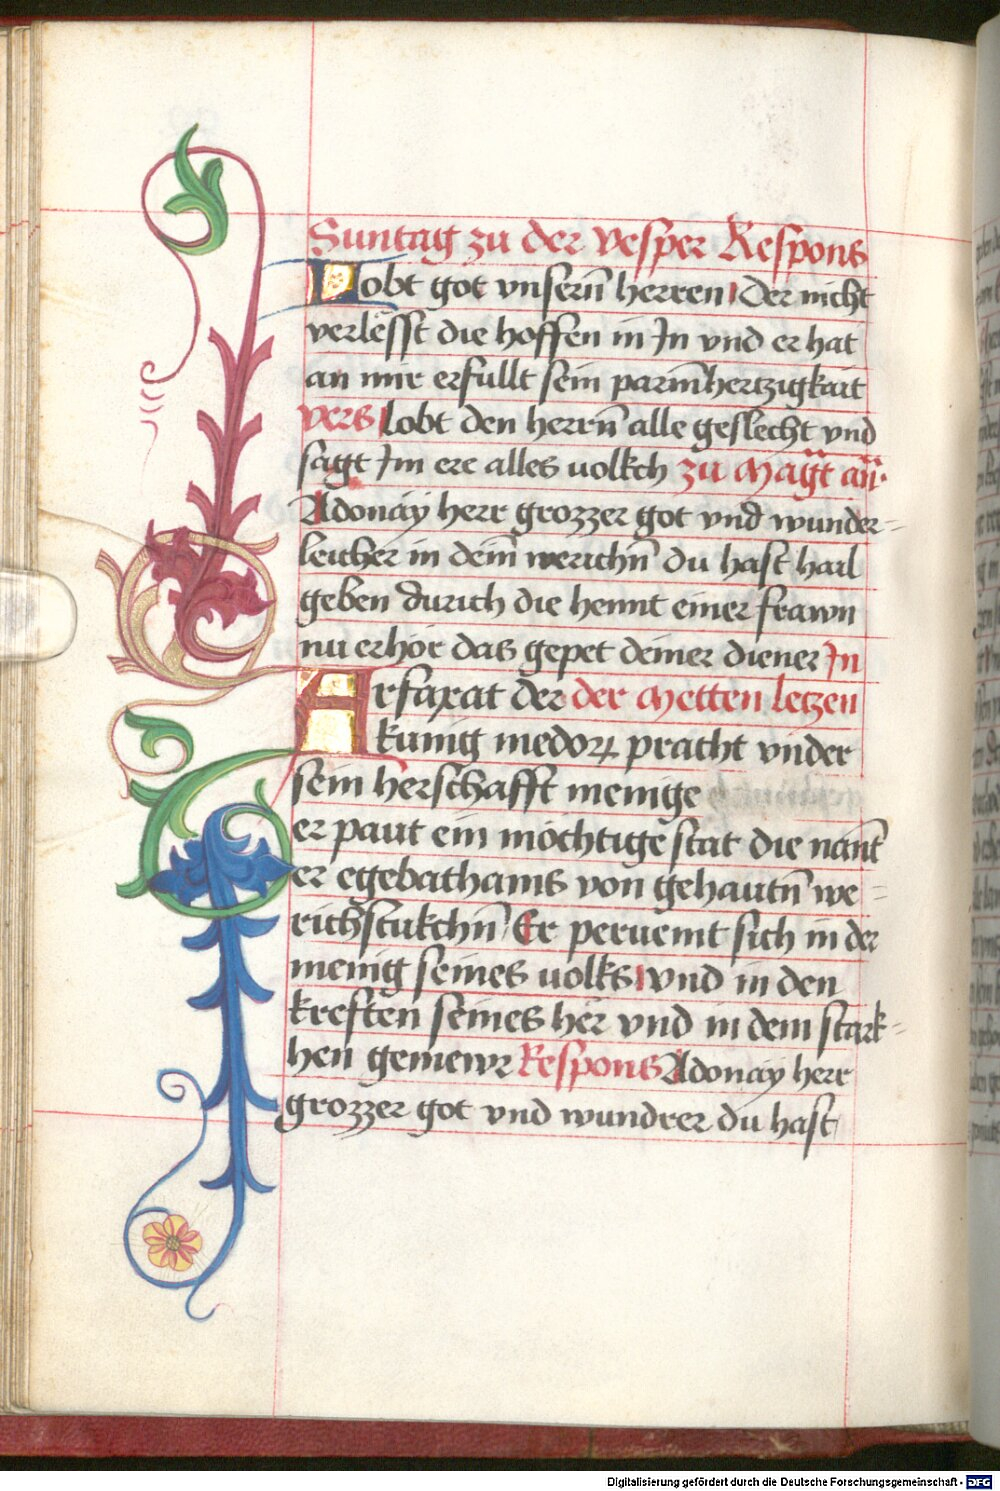 Suntag zu der vesper Respons
Lobt got vnsern̄ herren Der nicht
verlësst die hoffen in Jn vnd er hat
an mir erfullt sein parm̄hertzigkait
vers lobt den herrn̄ alle geslecht vnd
sagt Jm ere alles uolkch zu Magt̄ an̄.
Adonay herr grozzer got vnd wunder=
leicher in dein̄ werichn̄ du hast hail
geben durich die hennt einer frawn
nu erhör das gepet deiner diener Jn
Arfaxat der der Metten letzen
kunig medoꝝ pracht vnder
sein herschafft menige
er paut ein möchtige stat die nan̄t
er egebathanis von gehautn̄ we=
richstukchn̄ Er peruemt sich in der
menig seines uolks vnd in den
kreften seines her vnd in dem stark=
hen gemewr Respons Adonay herr
grozzer got vnd wundrer du hast
Digitalisierung gefördert durch die Deutsche Forschungsgemeinschaft - DFG